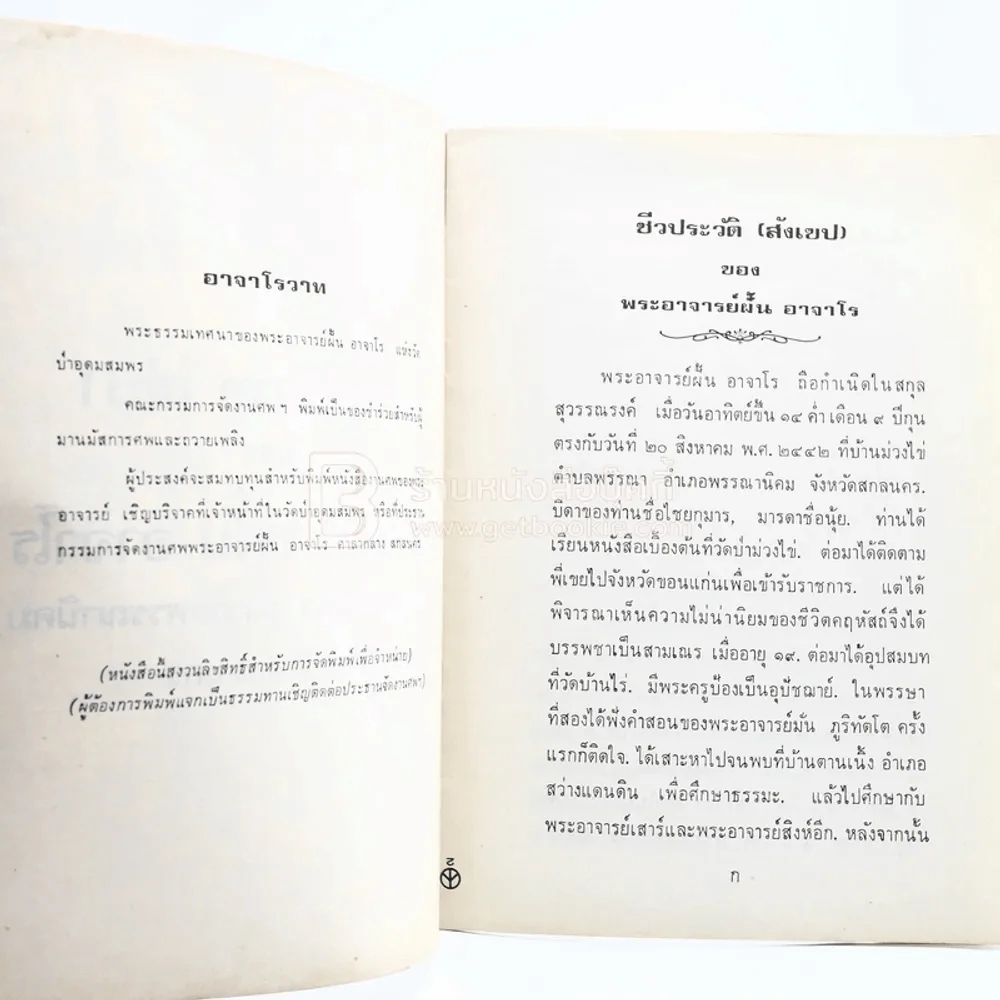 อาจาโรวาท
พระธรรมเทศนาของพระอาจารย์ฝั้น อาจาโร แห่งวัด
ป่าอุดมสมพร
คณะกรรมการจัดงานศพ ฯ พิมพ์เป็นของชำร่วยสำหรับผู้
มานมัสการศพและถวายเพลิง
ผู้ประสงค์จะสมทบทุนสำหรับพิมพ์หนังสืองานศพของพระ
อาจารย์ เชิญบริจาคที่เจ้าหน้าที่ในวัดป่าอุดมสมพร หรือที่ประธาน
กรรมการจัดงานศพพระอาจารย์ฝั้น อาจาโร ศาลากลาง สกลนคร
(หนังสือนี้สงวนลิขสิทธิ์สำหรับการจัดพิมพ์เพื่อจำหน่าย)
(ผู้ต้องการพิมพ์แจกเป็นธรรมทานเชิญติดต่อประธานจัดงานศพฯ)
ชีวประวัติ (สังเขป)
ของ
พระอาจารย์ฝั้น อาจาโร
พระอาจารย์ฝั้น อาจาโร ถือกำเนิดในสกุล
สุวรรณรงค์ เมื่อวันอาทิตย์ขึ้น ๑๔ ค่ำ เดือน ๙ ปีกุน
ตรงกับวันที่ ๒๐ สิงหาคม พ.ศ. ๒๔๔๒ ที่บ้านม่วงไข่
ตำบลพรรณา อำเภอพรรณานิคม จังหวัดสกลนคร.
บิดาของท่านชื่อไชยกุมาร, มารดาชื่อนุ้ย. ท่านได้
เรียนหนังสือเบื้องต้นที่วัดป่าม่วงไข่. ต่อมาได้ติดตาม
พี่เขยไปจังหวัดขอนแก่นเพื่อเข้ารับราชการ. แต่ได้
พิจารณาเห็นความไม่น่านิยมของชีวิตคฤหัสถ์จึงได้
บรรพชาเป็นสามเณร เมื่ออายุ ๑๙. ต่อมาได้อุปสมบท
ที่วัดบ้านไร่. มีพระครูป้องเป็นอุปัชฌาย์. ในพรรษา
ที่สองได้ฟังคำสอนของพระอาจารย์มั่น ภูริทัตโต ครั้ง
แรกก็ติดใจ. ได้เสาะหาไปจนพบที่บ้านตานเนิ้ง อำเภอ
สว่างแดนดิน เพื่อศึกษาธรรมะ. แล้วไปศึกษากับ
พระอาจารย์เสาร์และพระอาจารย์สิงห์อีก. หลังจากนั้น
ก
2
ร้านหนังสือบุ๊คกี้
www.getbookie.com